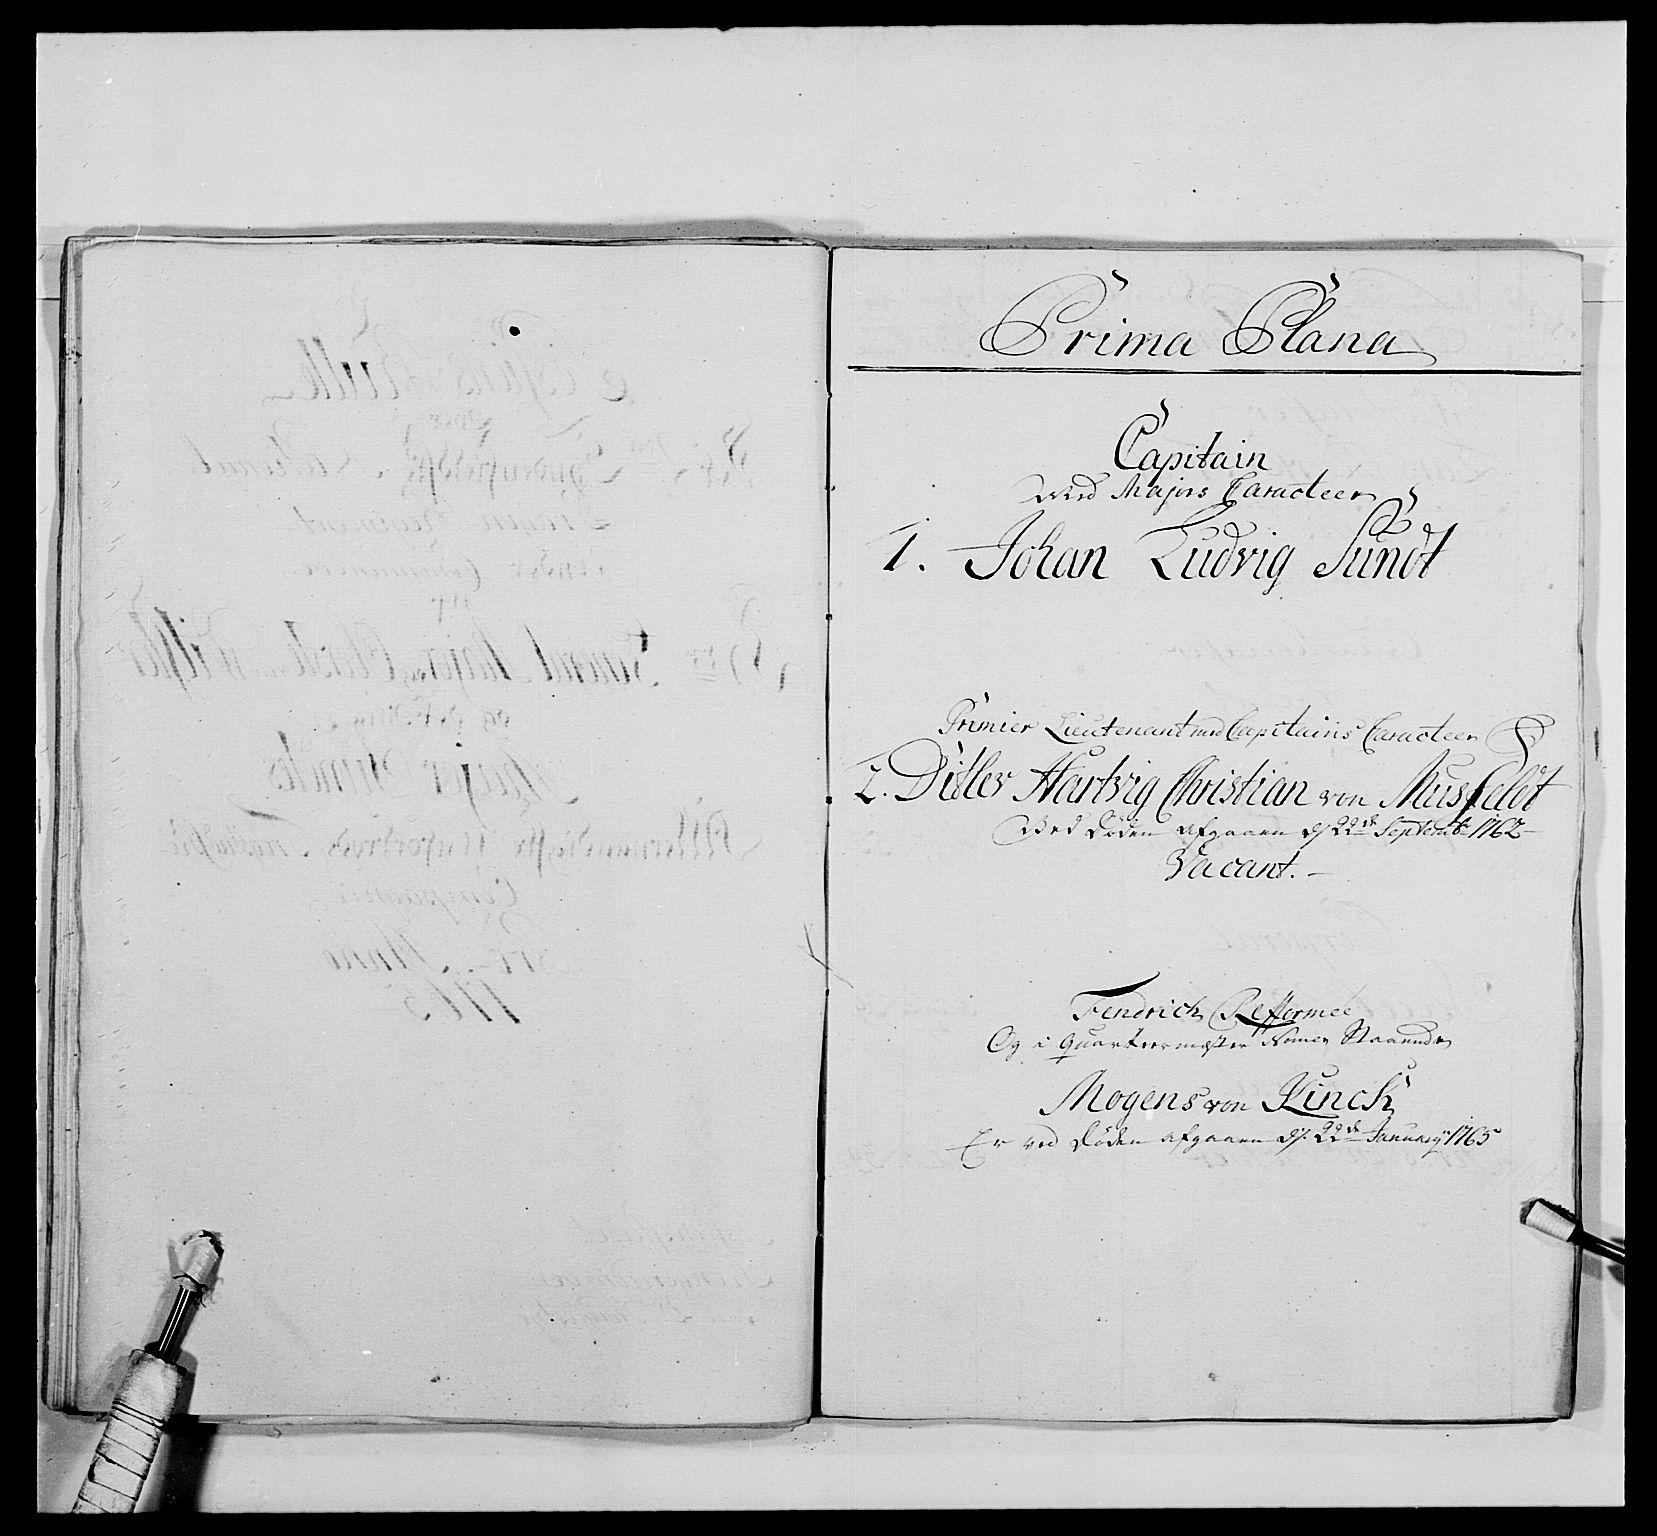 Prima Plana
Capitain
Med Majors Caracteer
1. Johan Ludvig Sundt
Primier Lieutenant med Capitains Caracteer
2. Ditlev Hartvig Christian von Musfeldt
Ved Døden afgaaen d. 22de Septembr 1762
Vacant. –
Fendrich Refformee
Og i Quarteermæster Nomer Staaende
Mogens von Kinck
Er ved Døden afgaaen d. 22de January 1765